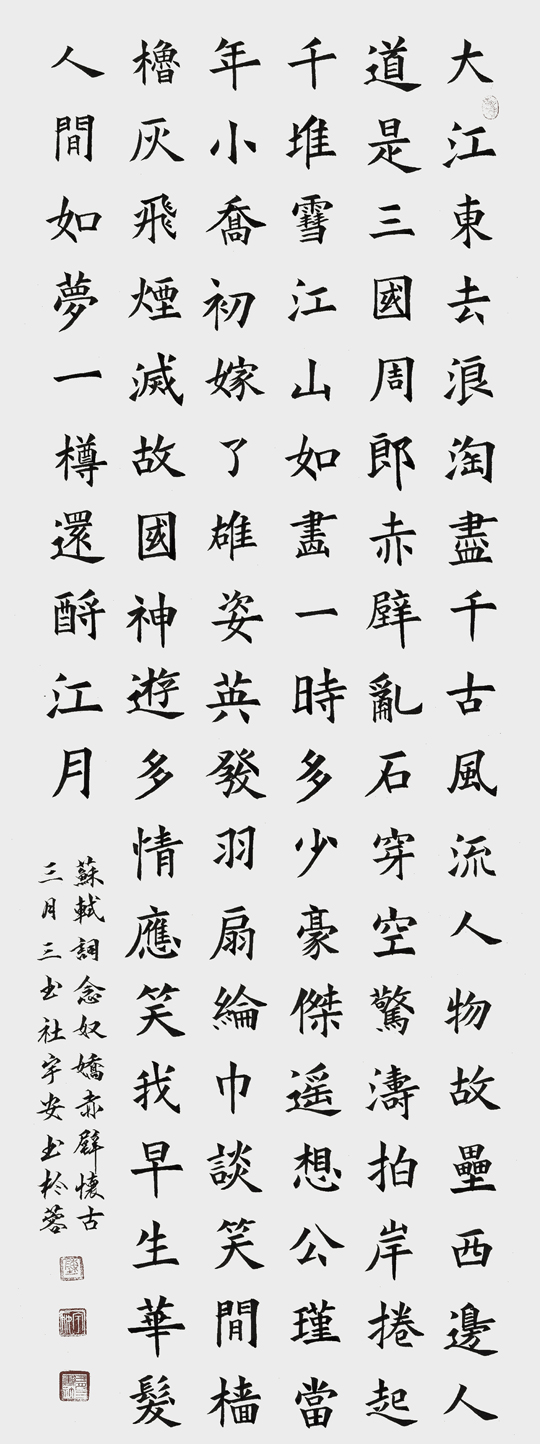 大江東去浪淘盡千古風流人物故壘西邊人
道是三國周郎赤壁亂石穿空驚濤拍岸捲起
千堆雪江山如畫一時多少豪傑遥想公瑾當
年小喬初嫁了雄姿英發羽扇綸巾談笑間檣
櫓灰飛煙滅故國神遊多情應笑我早生華髮
人間如夢一樽還酹江月
蘇軾詞念奴嬌赤壁懷古
三月三書社宇安書於蓉